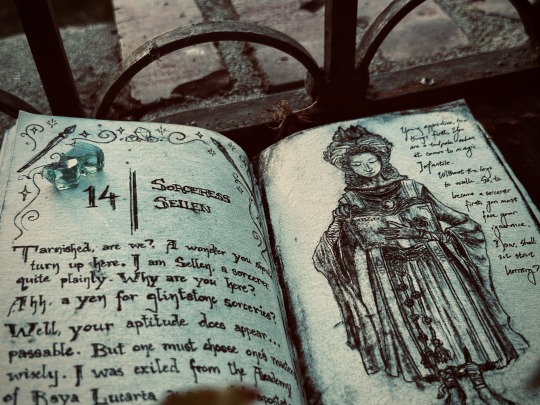 14
Sorceress
Sellen
Tarnished, are we? A wonder you
turn up here. I am Sellen, a sorcerer
quite plainly. Why are you here?
Ahh, a yen for glintstone sorceries?
Well, your aptitude does appear...
passable. But one must choose one's
wisely. I was exiled from the Academy
of Raya Lucaria
Young apprentice,
it comes to magic
Infantile.
Without the legs
to walk. So, to
become a sorcerer
first, you must
face your
ignorance.
Now, shall
we start
learning?